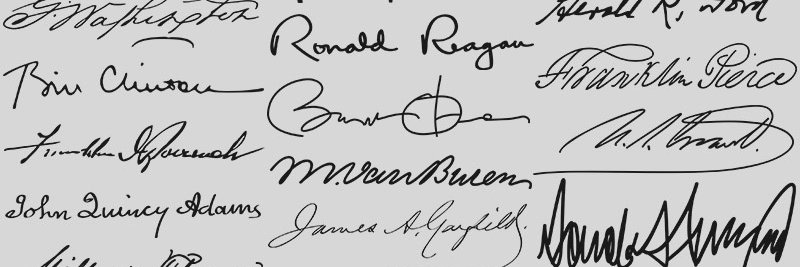 G. Washington
Bill Clinton
Franklin D. Roosevelt
John Quincy Adams
Ronald Reagan
Barack Obama
M. Van Buren
James A. Garfield.
Gerald R. Ford
Franklin Pierce
U. S. Grant.
Donald Trump